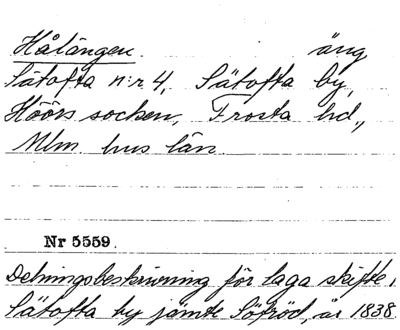 Hålängen. äng
Sätofta n:r 4, Sätofta by,
Höörs socken, Frosta hd.,
Mlm. hus län.
Nr 5559.
Delningsbeskrivning för laga skifte i
Sätofta by jämte Söfröd, år 1838.